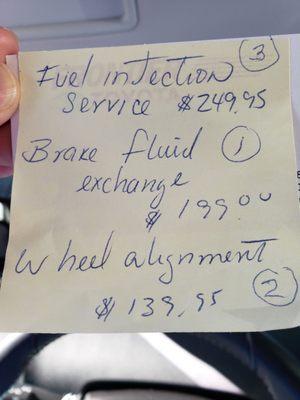 Fuel intection ③
Service $249.95
Brake fluid ①
exchange
$199.00
Wheel alignment
$139.95 ②